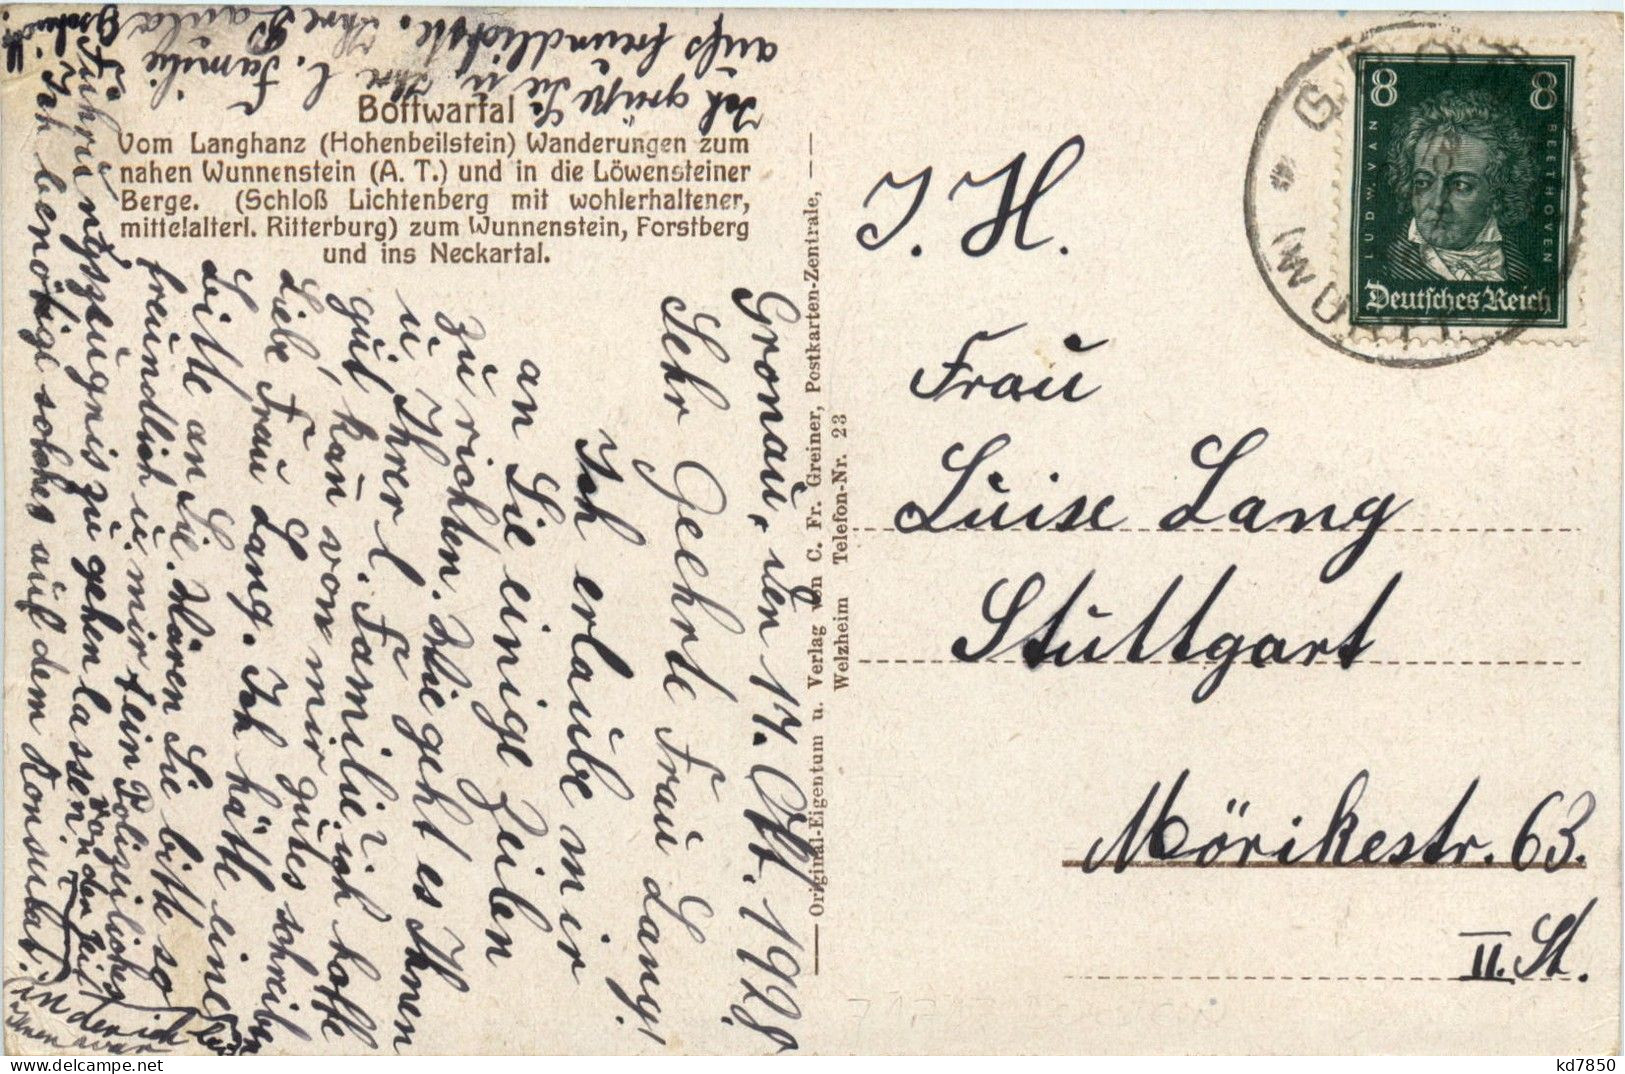 Bottwartal
Vom Langhanz (Hohenbeilstein) Wanderungen zum
nahen Wunnenstein (A. T.) und in die Löwensteiner
Berge. (Schloß Lichtenberg mit wohlerhaltener,
mittelalterl. Ritterburg) zum Wunnenstein, Forstberg
und ins Neckartal.
Gronau, den 17. Okt. 1928.
Sehr Geehrte Frau Lang!
Ich erlaube mir
an Sie einige Zeilen
zu richten. Wie geht es Ihnen
u. Ihrer l. Familie? ich hoffe
gut, kan von mir gutes schreiben
Liebe Frau Lang. Ich hätte eine
Bitte an Sie. Wären Sie bitte so
freundlich u. mir ein Polizeiliches
Führungszeugnis zu gehen lassen, von der Zeit
in der ich
Ihnen war
Ich benötige solches auf dem Konsulat.
Ich grüße Sie u. Ihre l. Familie
aufs freundlichste. Ihre Paula
Original-Eigentum u. Verlag von C. Fr. Greiner, Postkarten-Zentrale,
Welzheim Telefon-Nr. 23
8 8
LUDW. VAN BEETHOVEN
Deutsches Reich
(WÜRTT.
I. H.
Frau
Luise Lang
Stuttgart
Mörikestr. 63.
II. St.
kd7850